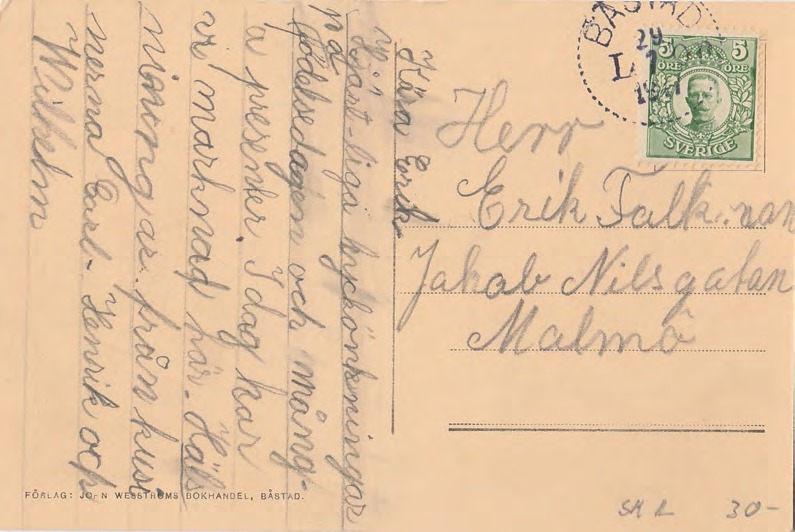 Kära Erik
Hjärt-liga lyckönskningar
på
födelsedagen och mång-
a presenter. I dag har
vi marknad här. Häls
ningar från kusi
nerna Carl-Henrik och
Wilhelm
Herr
Erik Falkman
Jakob Nilsgatan
Malmö
BÅSTAD
29
7
5 5
ÖRE ÖRE
SVERIGE
FÖRLAG: JOHN WESSTRÖMS BOKHANDEL, BÅSTAD.
30-